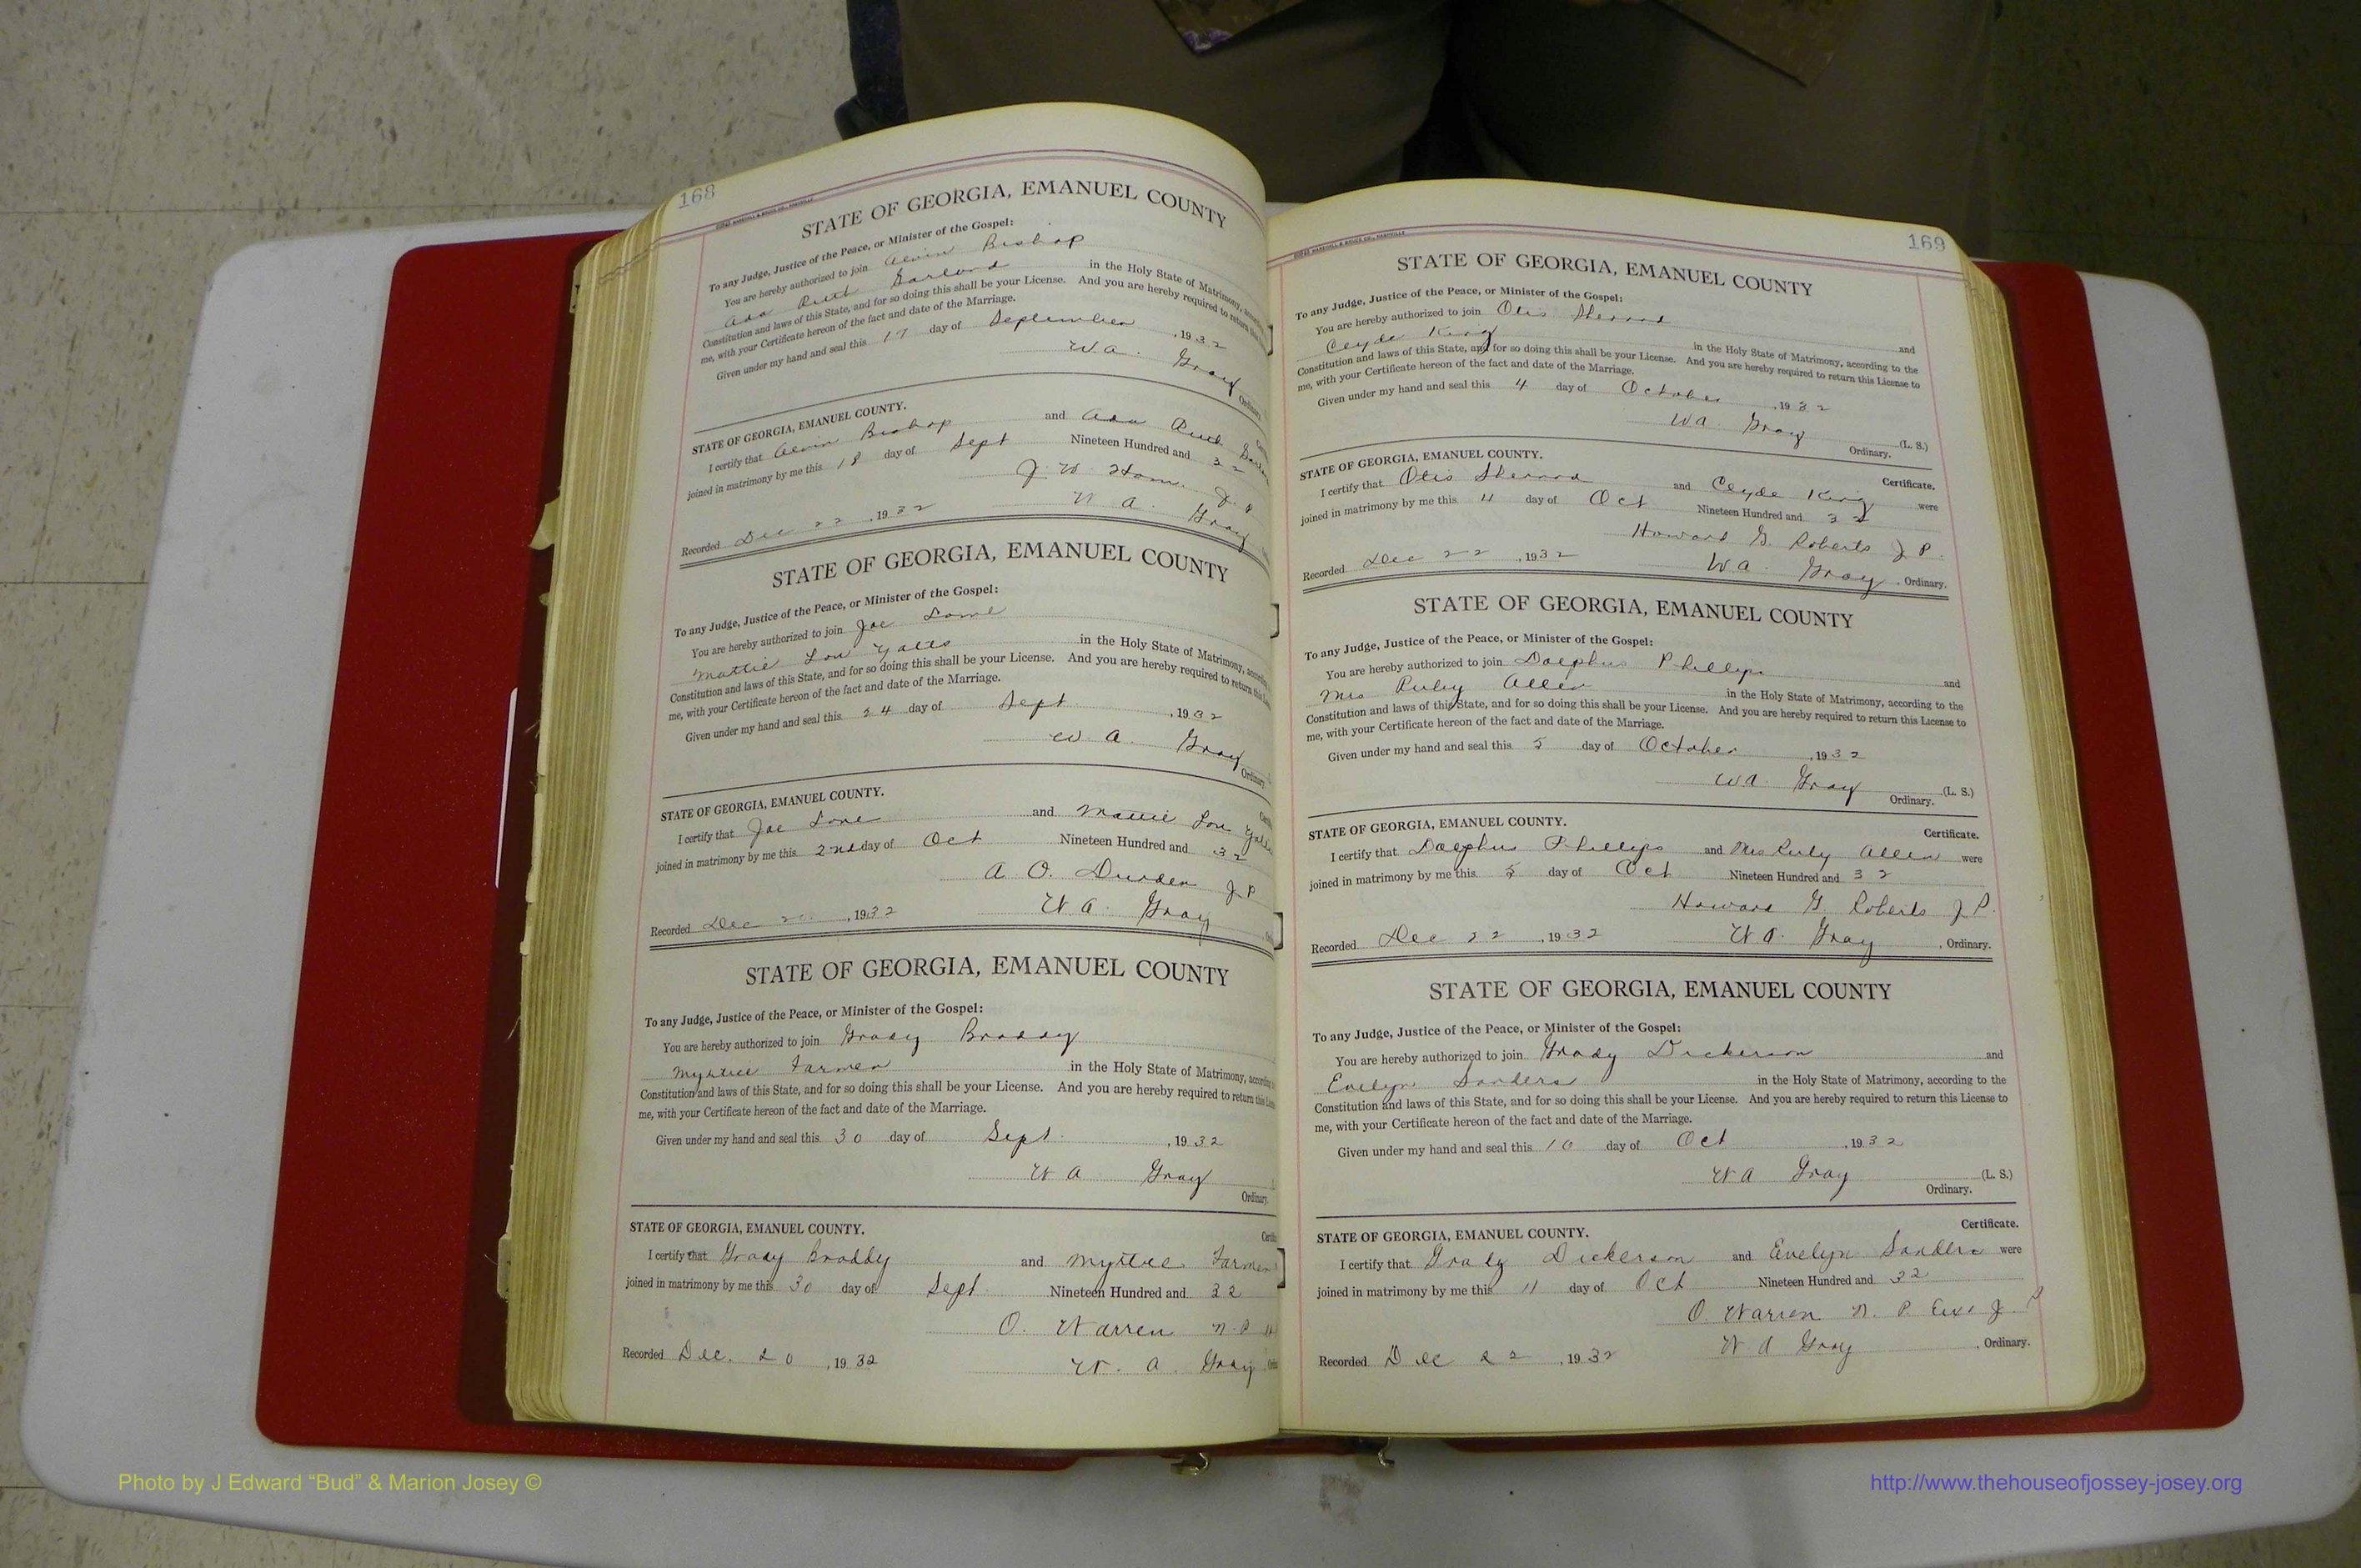 168
STATE OF GEORGIA, EMANUEL COUNTY
To any Judge, Justice of the Peace, or Minister of the Gospel:
You are hereby authorized to join Alvin Bishop
Ada Ruth Garland in the Holy State of Matrimony,
Constitution and laws of this State, and for so doing this shall be your License. And you are hereby required to return
me, with your Certificate hereon of the fact and date of the Marriage.
Given under my hand and seal this 17 day of September, 1932
W a. Gray
Ordinary
STATE OF GEORGIA, EMANUEL COUNTY.
I certify that Alvin Bishop and Ada Ruth
joined in matrimony by me this 18 day of Sept Nineteen Hundred and 32
J. W.
W a. Gray
Recorded Dec 22, 1932
STATE OF GEORGIA, EMANUEL COUNTY
To any Judge, Justice of the Peace, or Minister of the Gospel:
You are hereby authorized to join Joe
Mattie Lou in the Holy State of Matrimony,
Constitution and laws of this State, and for so doing this shall be your License. And you are hereby required to return this
me, with your Certificate hereon of the fact and date of the Marriage.
Given under my hand and seal this 24 day of Sept., 1932
W. a. Gray
Ordinary
STATE OF GEORGIA, EMANUEL COUNTY.
I certify that Joe and Mattie Lou
joined in matrimony by me this 2nd day of Oct Nineteen Hundred and 32
A O. Durden J P
W a. Gray
Recorded Dec, 1932
STATE OF GEORGIA, EMANUEL COUNTY
To any Judge, Justice of the Peace, or Minister of the Gospel:
You are hereby authorized to join Grady Braddy
Myrtice Farmer in the Holy State of Matrimony,
Constitution and laws of this State, and for so doing this shall be your License. And you are hereby required to return this
me, with your Certificate hereon of the fact and date of the Marriage.
Given under my hand and seal this 30 day of Sept., 1932
W a Gray
Ordinary.
STATE OF GEORGIA, EMANUEL COUNTY.
I certify that Grady Braddy and Myrtice Farmer
joined in matrimony by me this 30 day of Sept. Nineteen Hundred and 32
O. Warren N. P
Recorded Dec. 20, 1932 W. a. Gray
169
STATE OF GEORGIA, EMANUEL COUNTY
To any Judge, Justice of the Peace, or Minister of the Gospel:
You are hereby authorized to join Otis Sherrod and
Clyde King in the Holy State of Matrimony, according to the
Constitution and laws of this State, and for so doing this shall be your License. And you are hereby required to return this License to
me, with your Certificate hereon of the fact and date of the Marriage.
Given under my hand and seal this 4 day of October, 1932
W a. Gray (L. S.)
Ordinary.
STATE OF GEORGIA, EMANUEL COUNTY. Certificate.
I certify that Otis Sherrod and Clyde King were
joined in matrimony by me this 4 day of Oct Nineteen Hundred and 32
Howard G. Roberts J P.
Recorded Dec 22, 1932 W a. Gray, Ordinary.
STATE OF GEORGIA, EMANUEL COUNTY
To any Judge, Justice of the Peace, or Minister of the Gospel:
You are hereby authorized to join Dolphus Phillips and
Mrs Ruby Allen in the Holy State of Matrimony, according to the
Constitution and laws of this State, and for so doing this shall be your License. And you are hereby required to return this License to
me, with your Certificate hereon of the fact and date of the Marriage.
Given under my hand and seal this 5 day of October, 1932
W a. Gray (L. S.)
Ordinary.
STATE OF GEORGIA, EMANUEL COUNTY. Certificate.
I certify that Dolphus Phillips and Mrs Ruby Allen were
joined in matrimony by me this 5 day of Oct Nineteen Hundred and 32
Howard G Roberts J P.
Recorded Dec 22, 1932 W a. Gray, Ordinary.
STATE OF GEORGIA, EMANUEL COUNTY
To any Judge, Justice of the Peace, or Minister of the Gospel:
You are hereby authorized to join Grady Dickerson and
Evelyn Sanders in the Holy State of Matrimony, according to the
Constitution and laws of this State, and for so doing this shall be your License. And you are hereby required to return this License to
me, with your Certificate hereon of the fact and date of the Marriage.
Given under my hand and seal this 10 day of Oct, 1932
W a Gray (L. S.)
Ordinary.
STATE OF GEORGIA, EMANUEL COUNTY. Certificate.
I certify that Grady Dickerson and Evelyn Sanders were
joined in matrimony by me this 11 day of Oct Nineteen Hundred and 32
O. Warren N. P. J. P
Recorded Dec 22, 1932 W a Gray, Ordinary.
Photo by J Edward “Bud” & Marion Josey ©
http://www.thehouseofjossey-josey.org